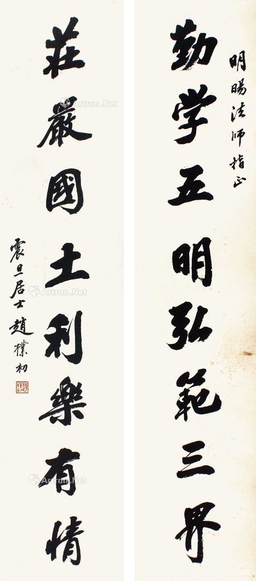 明暘法师指正
勤学五明弘範三界
莊嚴國土利樂有情
震旦居士趙樸初